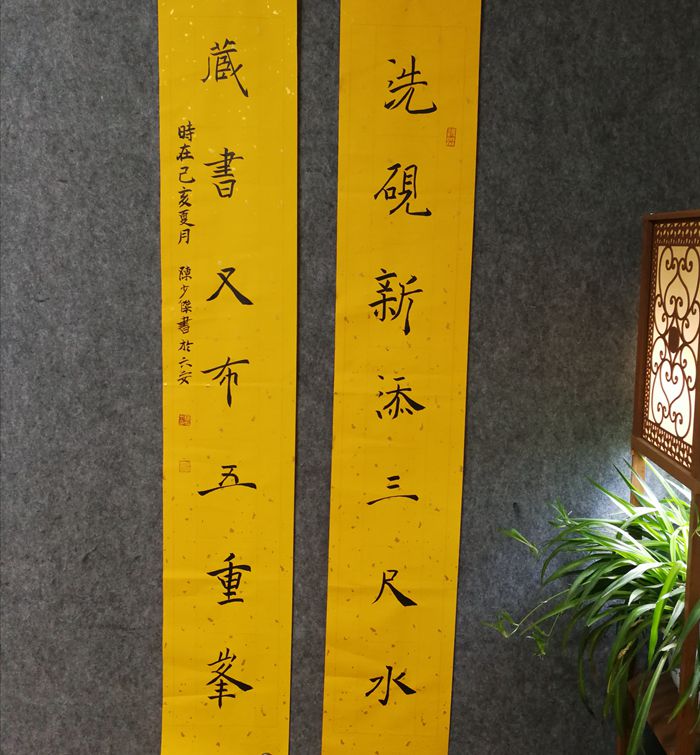 洗硯新添三尺水
藏書又布五重峯
時在己亥夏月 陳少傑書於六安